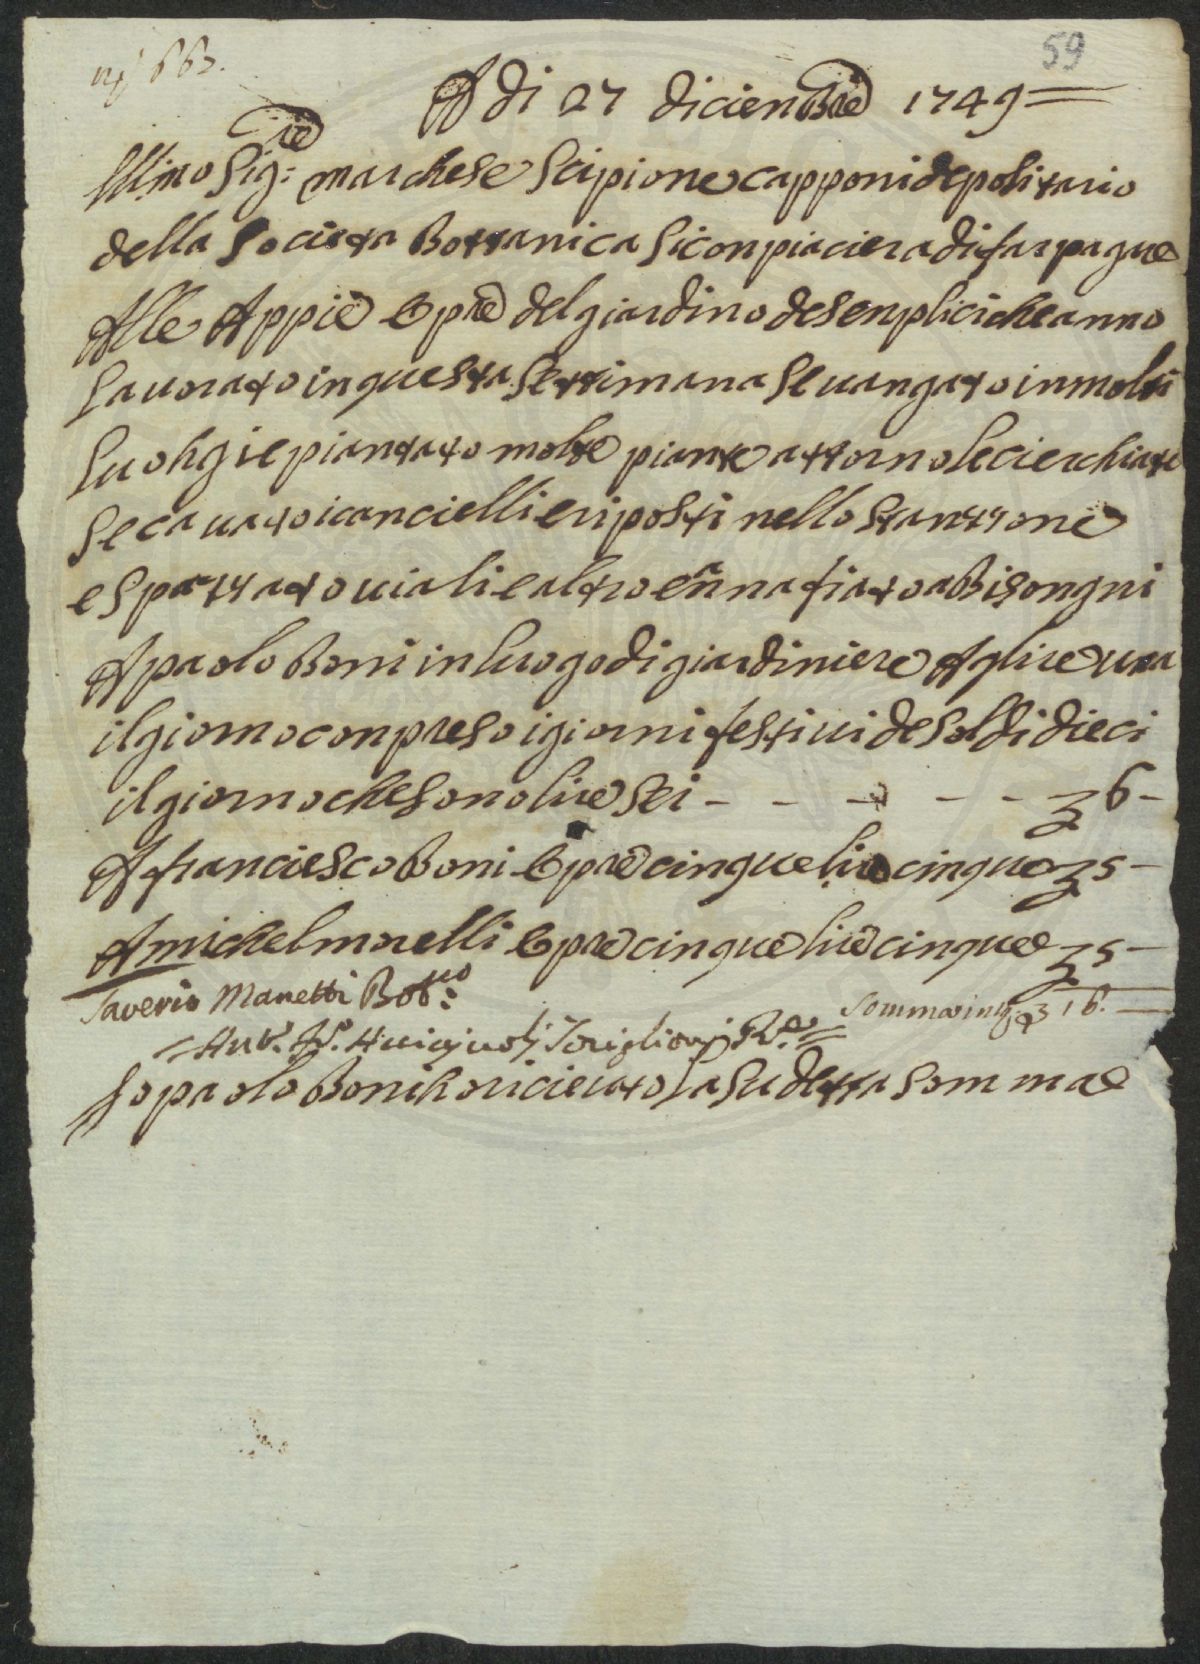 59
A di 27 dicienbre 1749
Ill:mo Sig:re marchese Scipione capponi depositario
della Societa Bottanica si conpiaciera di far pagare
Alle Appie Opre del giardino de senplici che anno
Lauorato in questa Settimana Se uangato in molti
luohgi e piantato molte piante attorno le cierchiate
Se cauato i cancielli e riposti nello stantzone
e spatzato uiali e altro e nnafiato a bisongni
A paolo Boni in luogo di giardiniere A lire una
il giorno conpreso i giorni festiui de soldi dieci
il giorno che sono lire sei - - - - - 6 -
A franciesco Boni Opre cinque lire cinque 5 -
A michel morelli Opre cinque lire cinque 5 -
Saverio Manetti Bot:co
Somma in 16. -
Io paolo Boni ho riceuto la sudetta somma